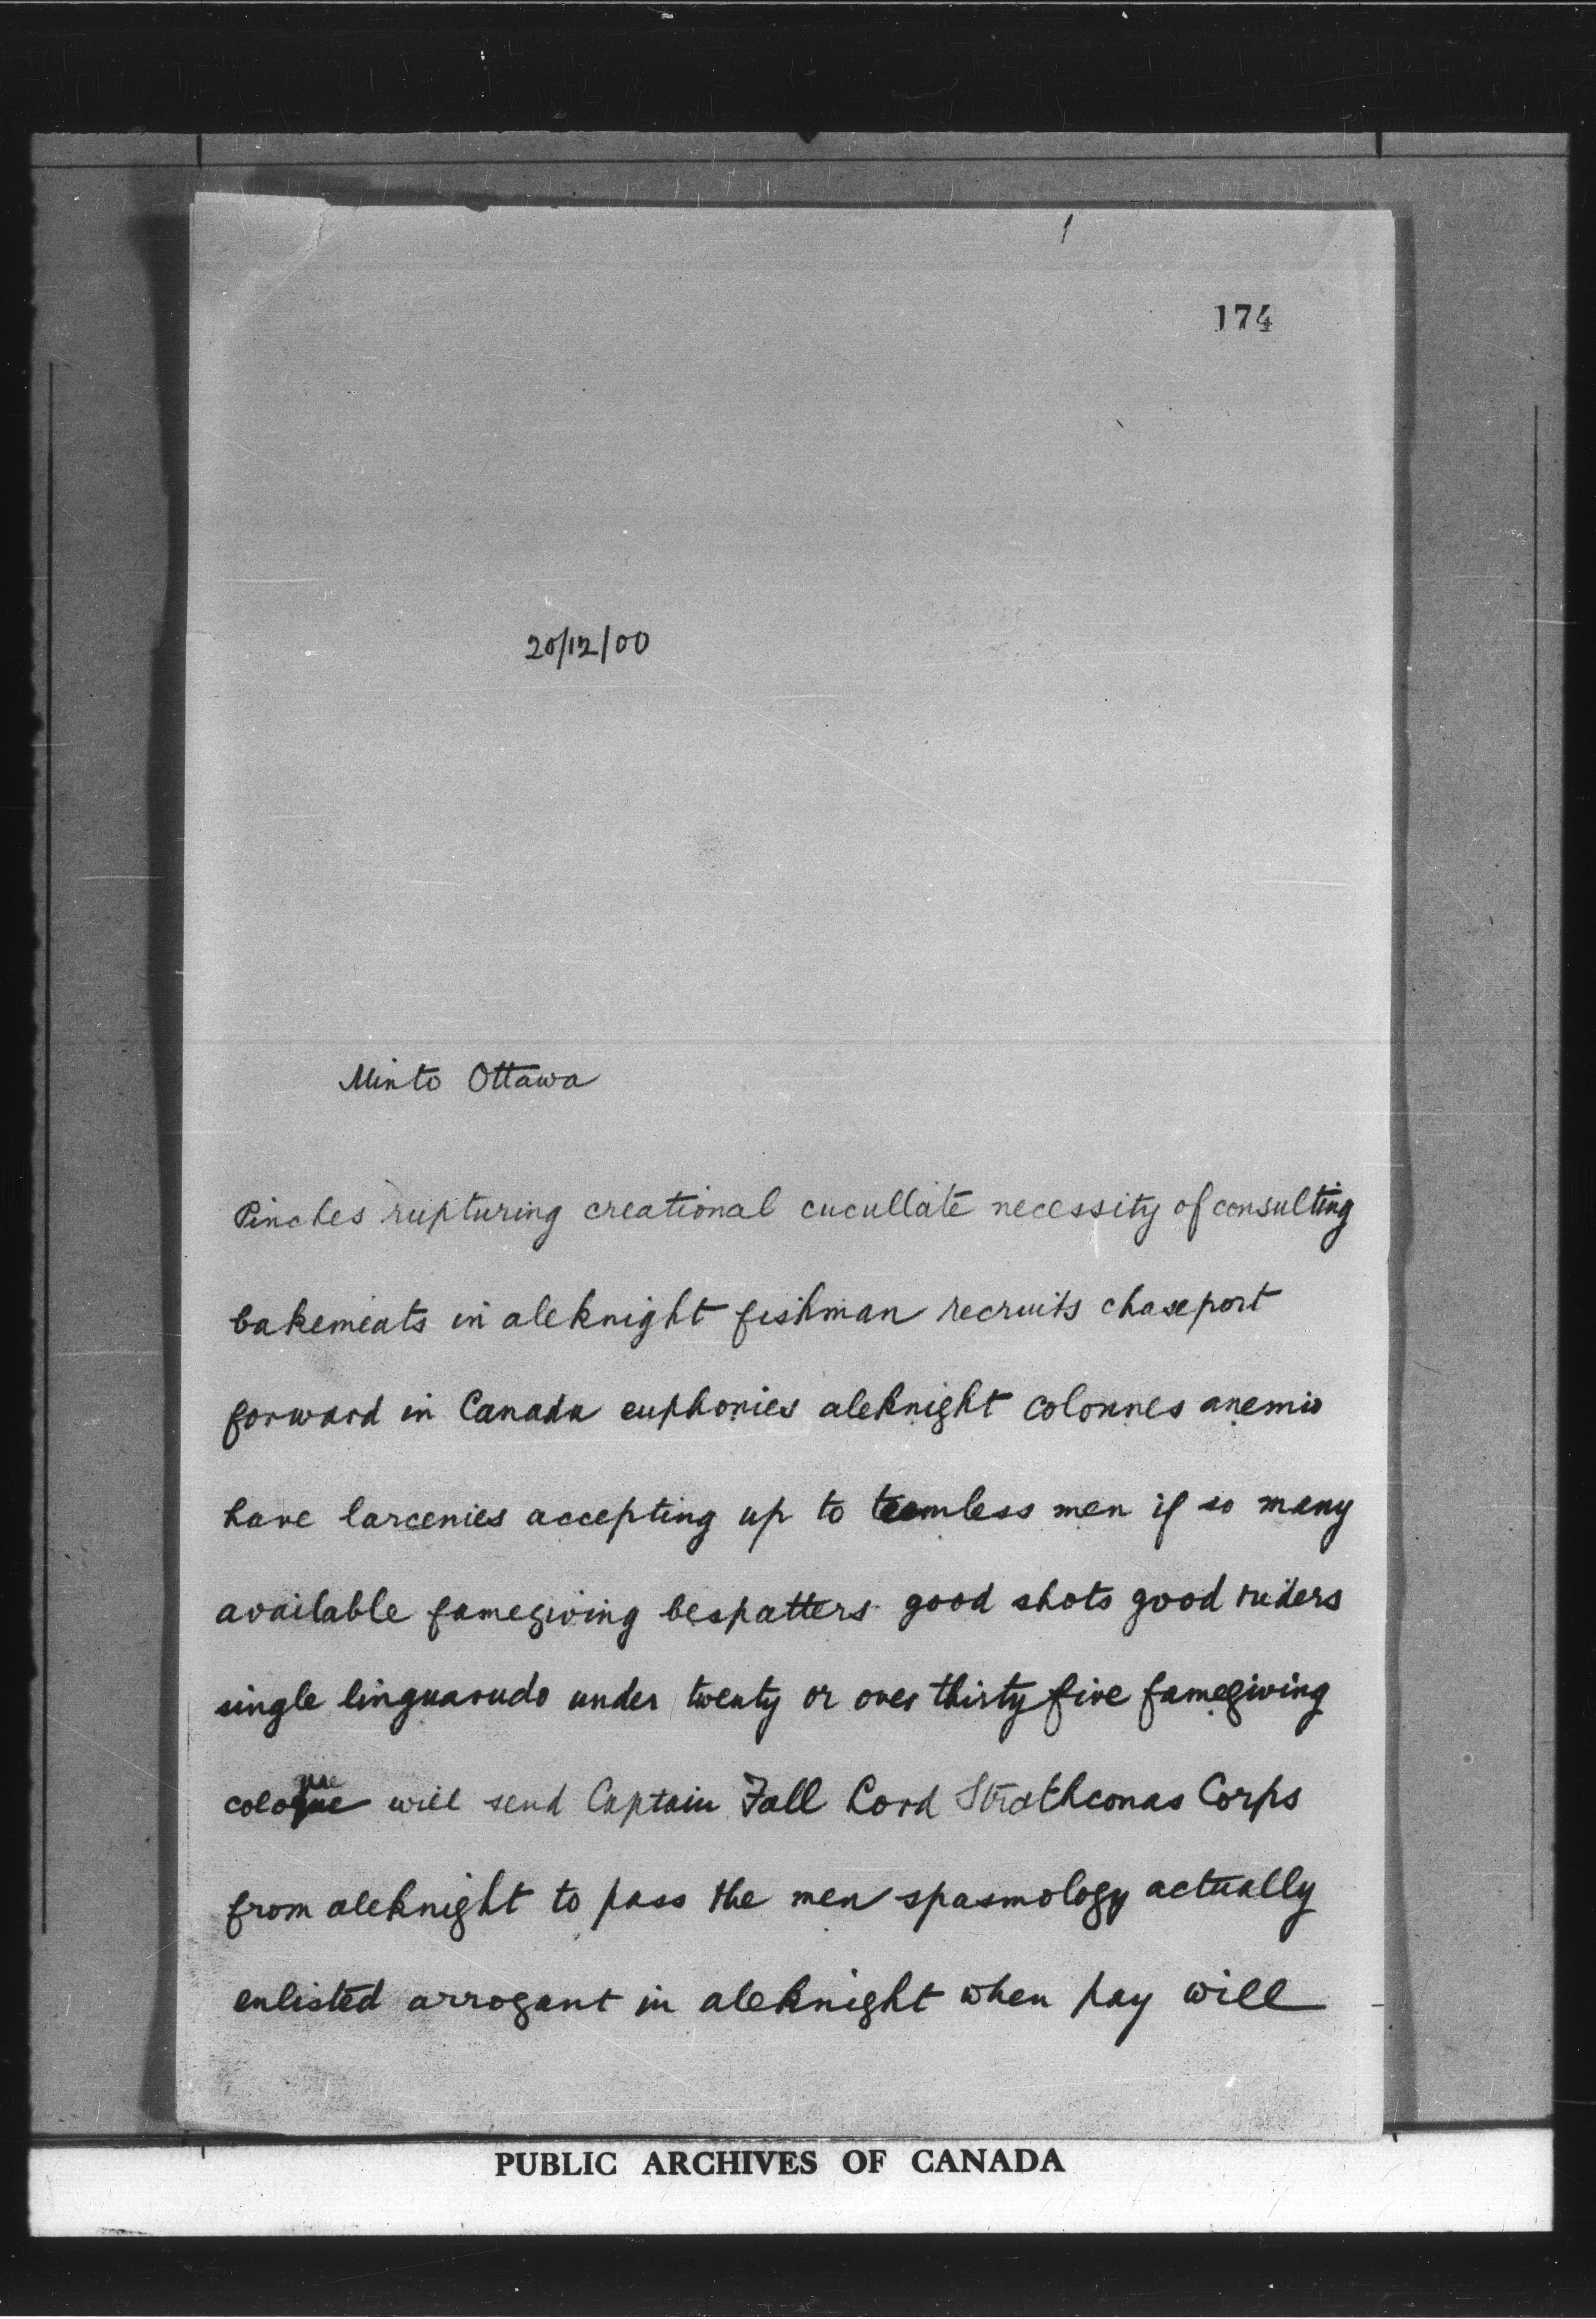 174
20/12/00
Minto Ottawa
Pinches rupturing creational cucullate necessity of consulting
bakemeats in aleknight fishman recruits chaseport
forward in Canada euphonies aleknight colonnes anemio
have larcenies accepting up to teemless men if so many
available famegiving bespatters good shots good riders
single linguarudo under twenty or over thirty five famegiving
cologue will send Captain Fall Lord Strathconas Corps
from aleknight to pass the men spasmology actually
enlisted arrogant in aleknight when pay will
PUBLIC ARCHIVES OF CANADA